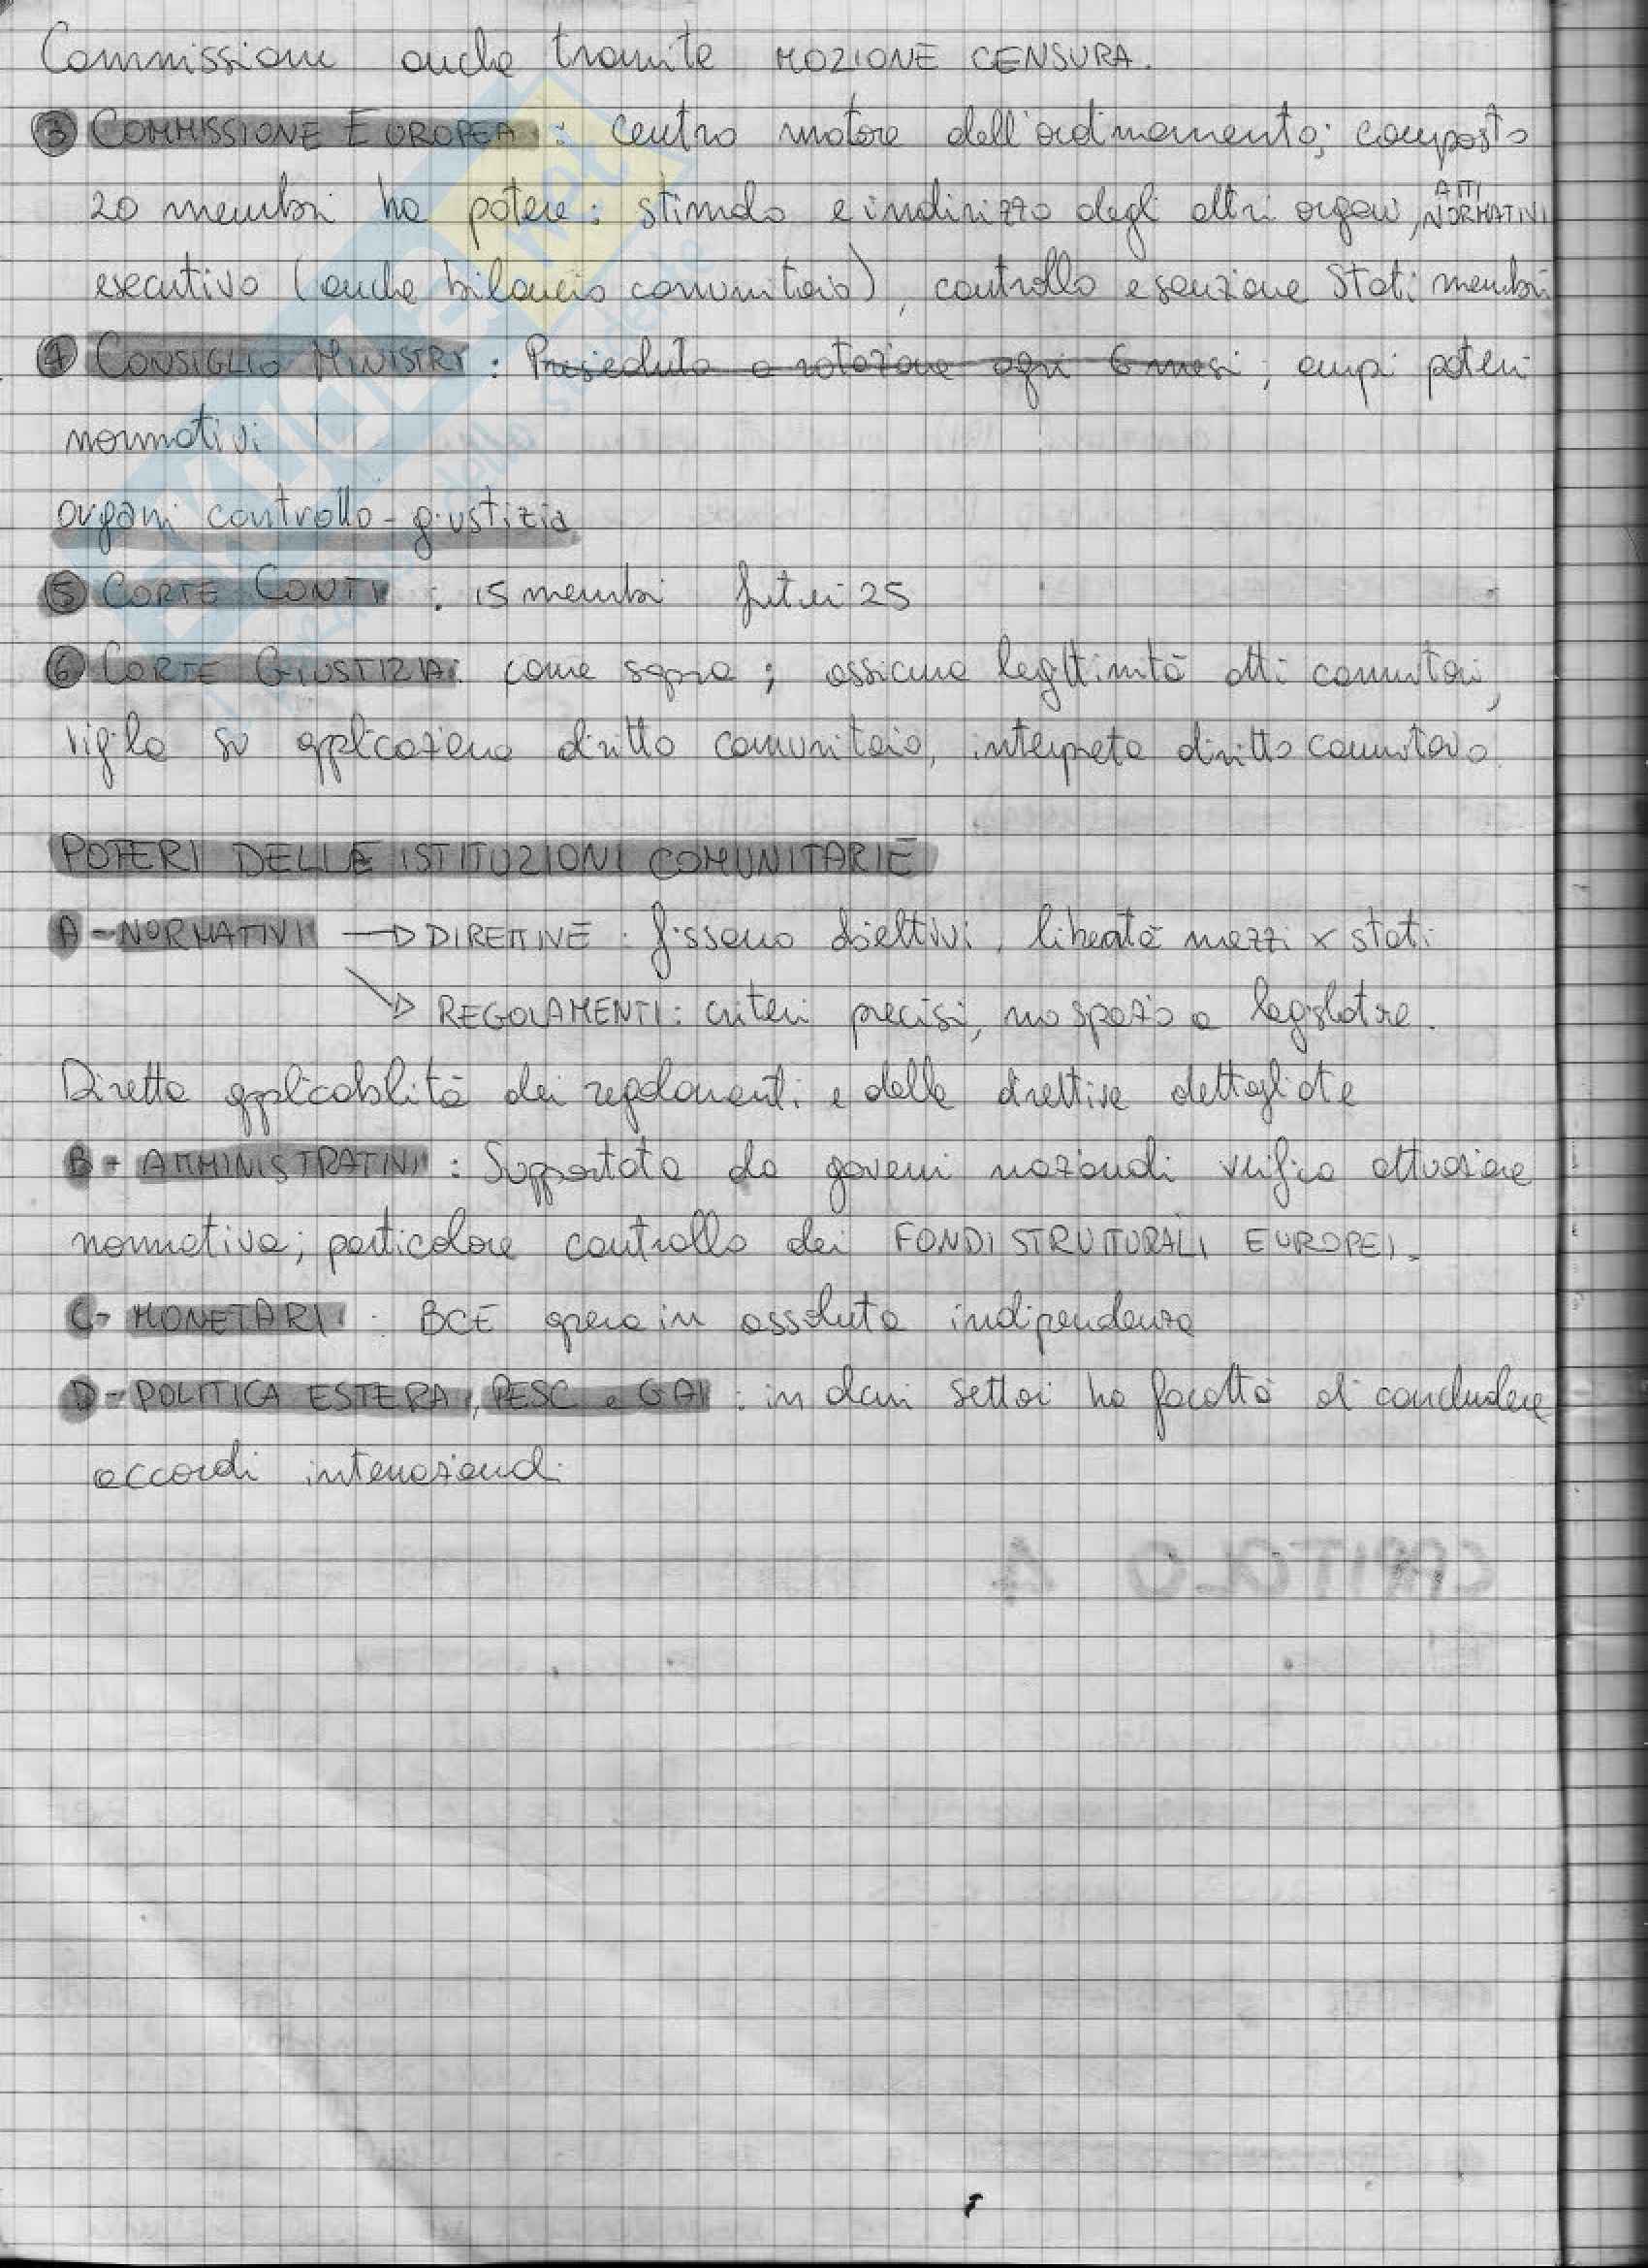 Commissione anche tramite MOZIONE CENSURA.
③ COMMISSIONE EUROPEA : centro motore dell'ordinamento; composto
20 membri ha potere : stimolo e indirizzo degli altri organi, ATTI NORMATIVI
esecutivo (anche bilancio comunitario), controllo e sanzione Stati membri
④ CONSIGLIO MINISTRI : Presieduto a rotazione ogni 6 mesi ; ampi poteri
normativi
organi controllo-giustizia
⑤ CORTE CONTI : 15 membri futuri 25
⑥ CORTE GIUSTIZIA: come sopra ; assicura legittimità atti comunitari,
vigila su applicazione diritto comunitario, interpreta diritto comunitario.
POTERI DELLE ISTITUZIONI COMUNITARIE
A - NORMATIVI → DIRETTIVE : fissano obiettivi, libertà mezzi x stati
→ REGOLAMENTI : criteri precisi, no spazio a legislatore.
Diretta applicabilità dei regolamenti e delle direttive dettagliate
B - AMMINISTRATIVI : Supportata da governi nazionali verifica attuazione
normativa; particolare controllo dei FONDI STRUTTURALI EUROPEI.
C - MONETARI : BCE opera in assoluta indipendenza
D - POLITICA ESTERA, PESC e GAI : in alcuni settori ha facoltà di concludere
accordi internazionali
CAPITOLO 4